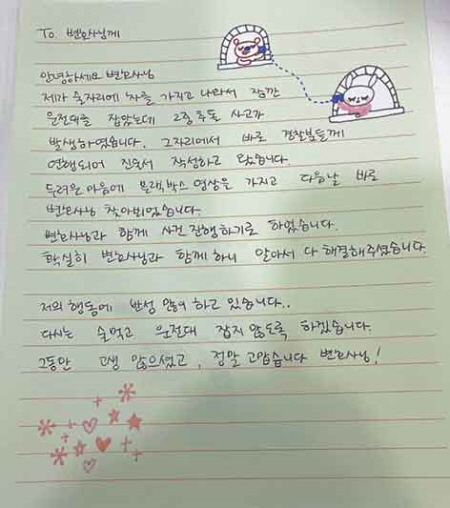 To. 변호사님께
안녕하세요 변호사님
제가 술자리에 차를 가지고 나와서 잠깐
운전대를 잡았는데 2중 추돌 사고가
발생하였습니다. 그자리에서 바로 경찰분들께
연행되어 진술서 작성하고 왔습니다.
두려운 마음에 블랙박스 영상을 가지고 다음날 바로
변호사님 찾아뵈었습니다.
변호사님과 함께 사건 진행하기로 하였습니다.
확실히 변호사님과 함께 하니 알아서 다 해결해주셨습니다.
저의 행동에 반성 많이 하고 있습니다..
다시는 술먹고 운전대 잡지 않도록 하겠습니다.
그동안 고생 많으셨고, 정말 고맙습니다 변호사님!